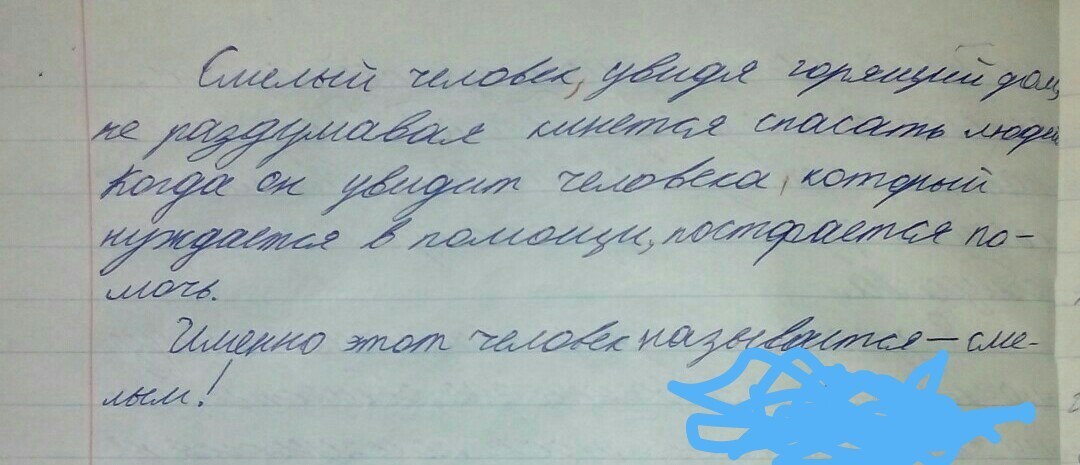 Смелый человек, увидя горящий дом,
не раздумавая кинется спасать людей
Когда он увидит человека, который
нуждается в помощи, постарается по-
мочь.
Именно этот человек называется – сме-
лым!